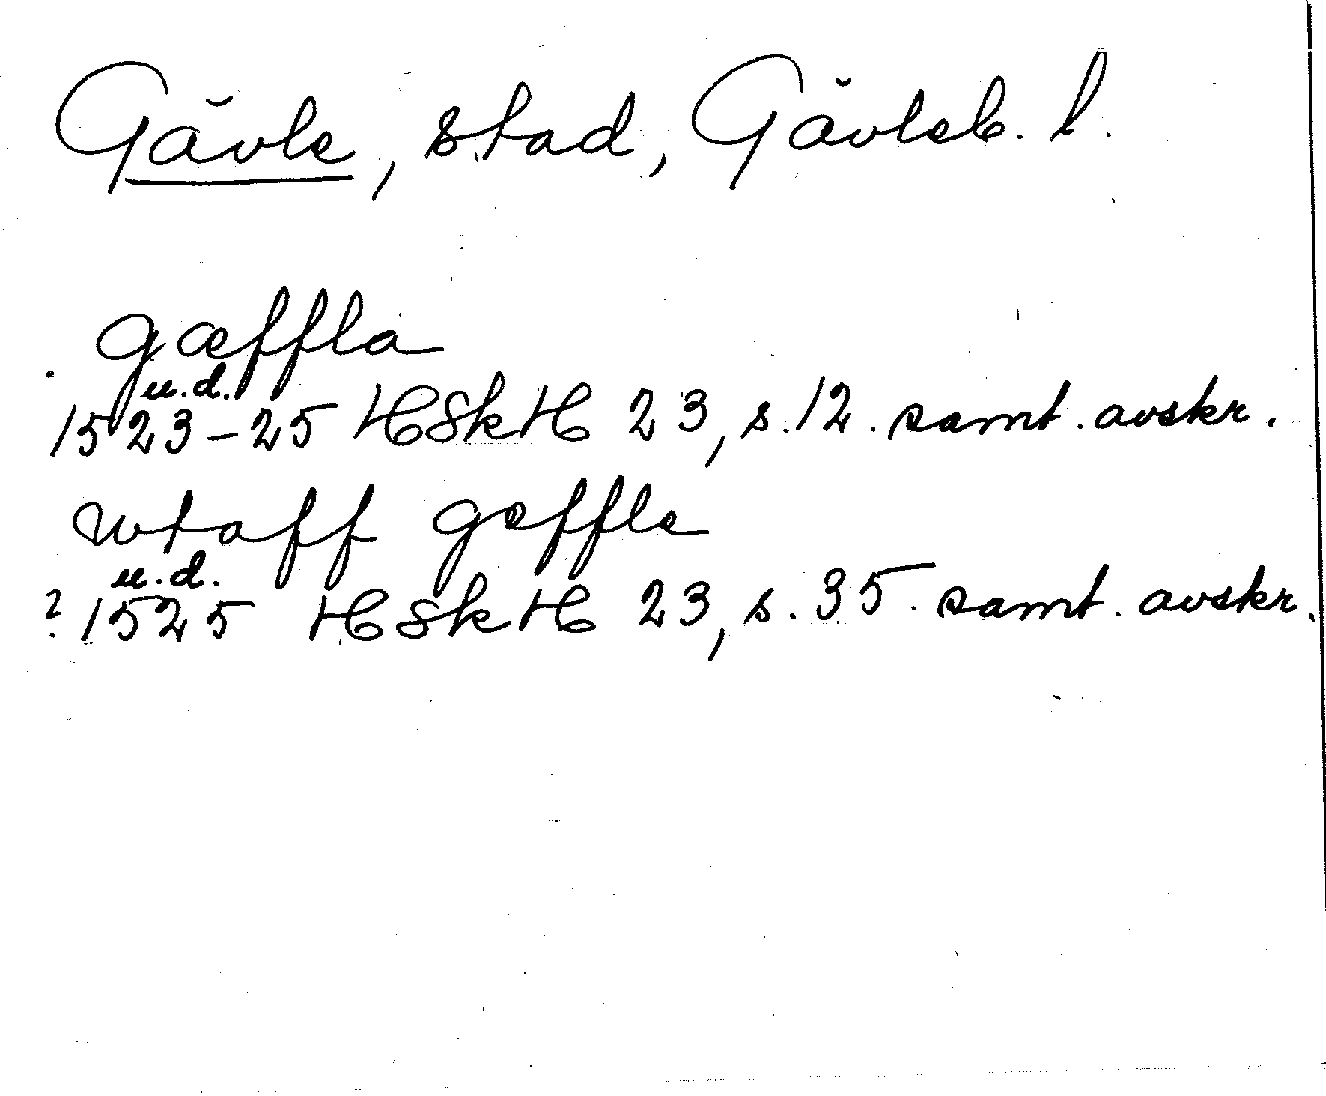 Gävle, stad, Gävleb. l.
gæffla
u.d.
1523-25 HSkH 23, s. 12. samt. avskr.
wtaff gæffle
u.d.
? 1525 HSkH 23, s. 35. samt. avskr.